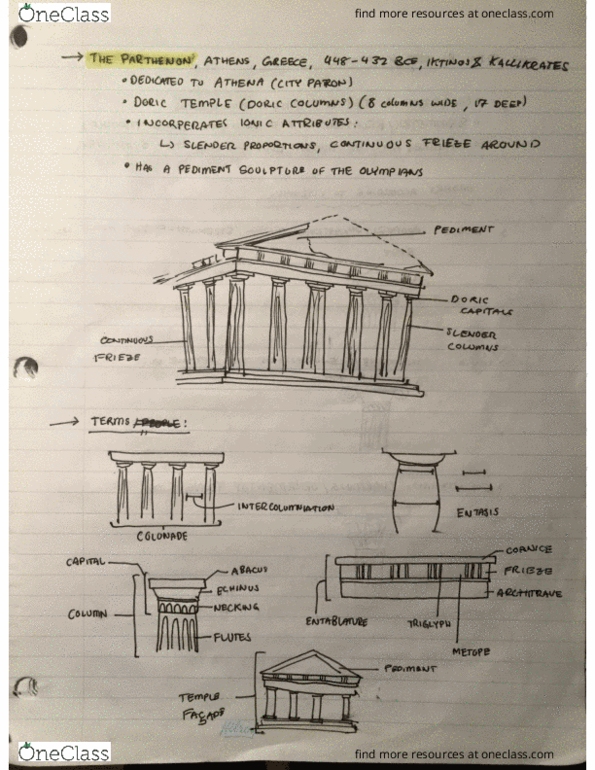 OneClass
find more resources at oneclass.com
→ THE PARTHENON, ATHENS, GREECE, 448-432 BCE, IKTINOS & KALLIKRATES
• DEDICATED TO ATHENA (CITY PARON)
• DORIC TEMPLE (DORIC COLUMNS) (8 COLUMNS WIDE, 17 DEEP)
• INCORPERATES IONIC ATTRIBUTES:
↳ SLENDER PROPORTIONS, CONTINUOUS FRIEZE AROUND
• HAS A PEDIMENT SCULPTURE OF THE OLYMPIANS
PEDIMENT
DORIC
CAPITALS
SLENDER
COLUMNS
CONTINUOUS
FRIEZE
→ TERMS/PEOPLE:
INTERCOLUMNIATION
COLONADE
ENTASIS
CAPITAL
ABACUS
ECHINUS
NECKING
COLUMN
FLUTES
CORNICE
FRIEZE
ARCHITRAVE
ENTABLATURE
TRIGLYPH
METOPE
PEDIMENT
TEMPLE
FAÇADE
Hilroy
OneClass
find more resources at oneclass.com